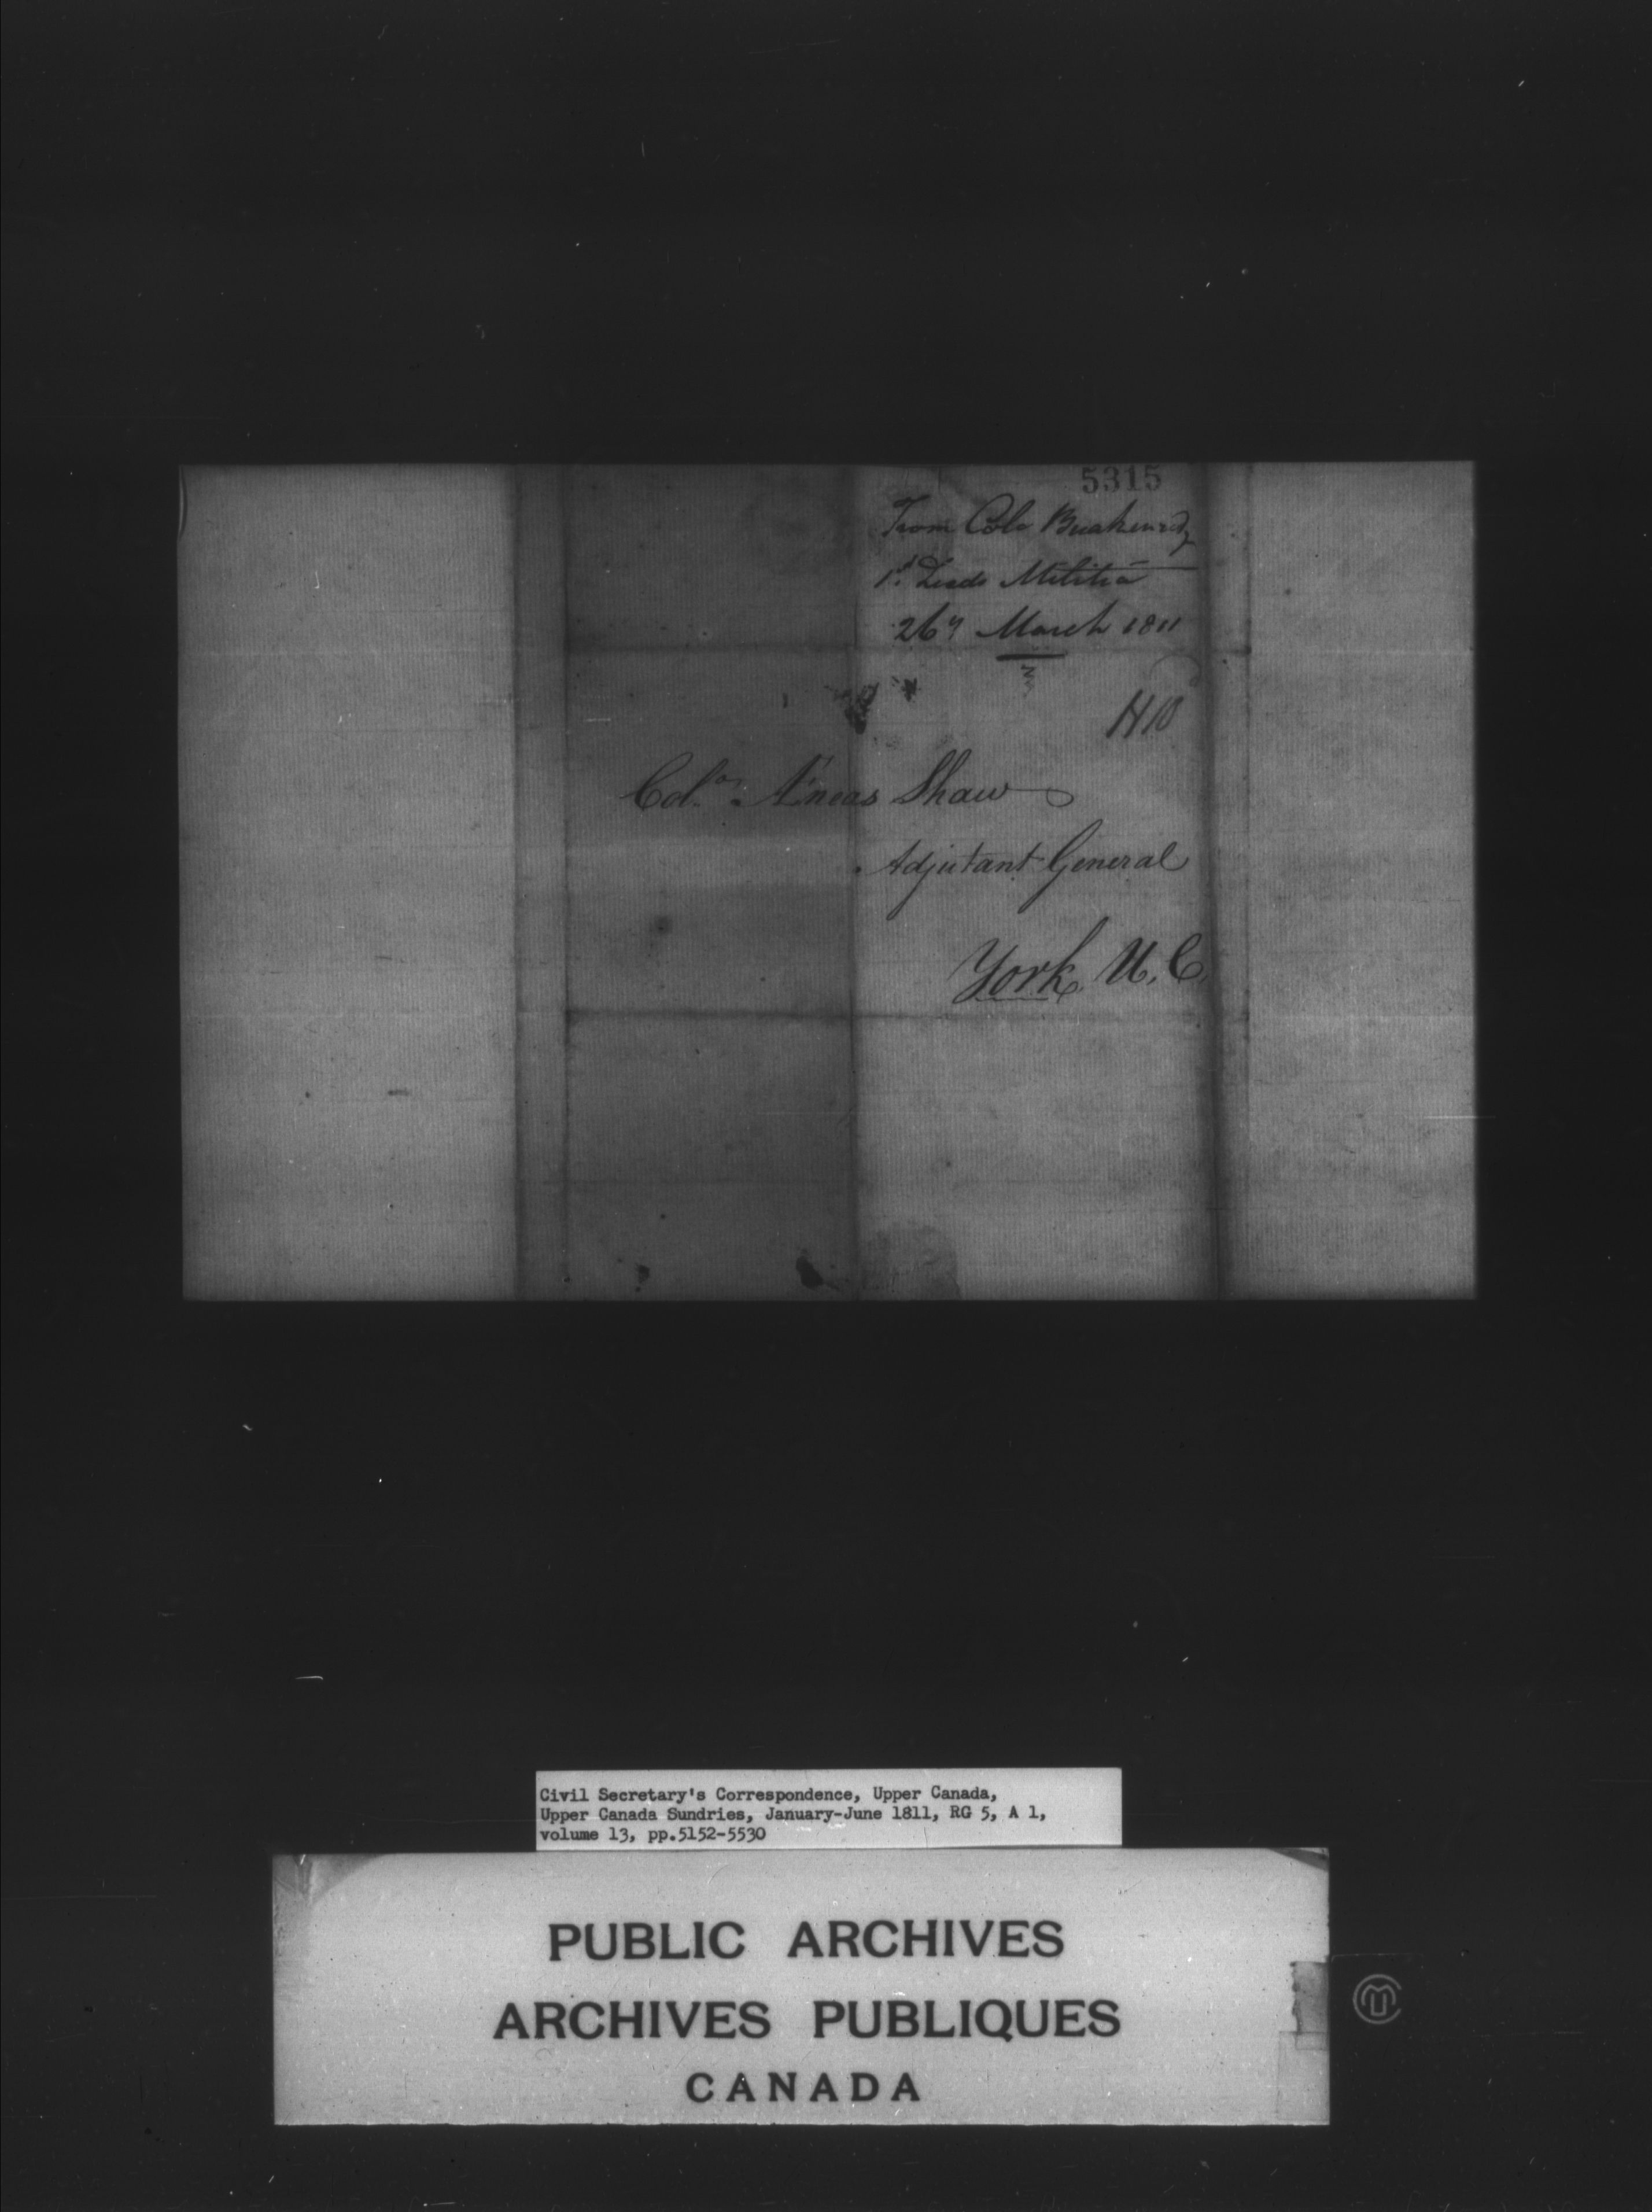 5315
From Colo Breakenridge
1st Leeds Militia
26th March 1811
Colo. Æneas Shaw
Adjutant General
York, U.C.
Civil Secretary's Correspondence, Upper Canada,
Upper Canada Sundries, January-June 1811, RG 5, A 1,
volume 13, pp.5152-5530
PUBLIC ARCHIVES
ARCHIVES PUBLIQUES
CANADA